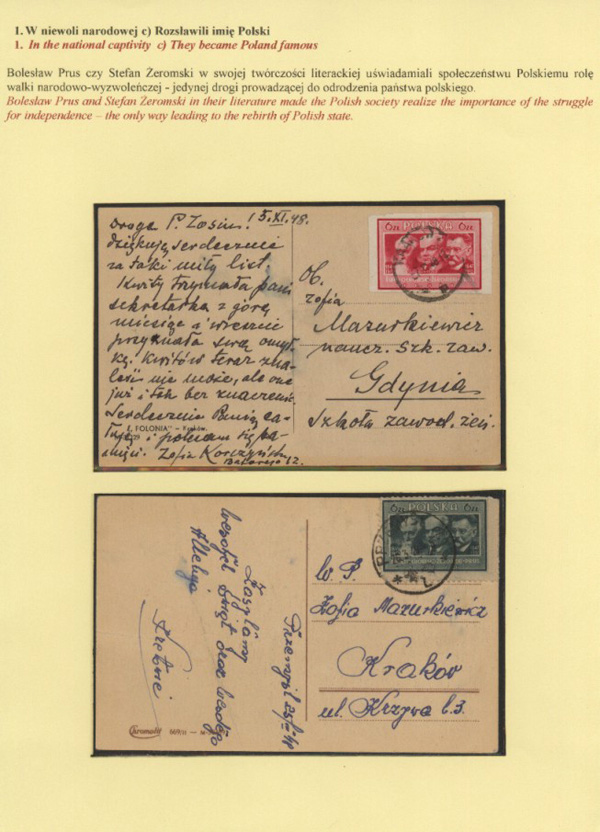 1. W niewoli narodowej c) Rozsławili imię Polski
1. In the national captivity c) They became Poland famous
Bolesław Prus czy Stefan Żeromski w swojej twórczości literackiej uświadamiali społeczeństwu Polskiemu rolę
walki narodowo-wyzwoleńczej - jedynej drogi prowadzącej do odrodzenia państwa polskiego.
Bolesław Prus and Stefan Żeromski in their literature made the Polish society realize the importance of the struggle
for independence – the only way leading to the rebirth of Polish state.
15.XI.48.
Droga P. Zosiu!
dziękuję serdecznie
za taki miły list.
Kwity trzymała pani
sekretarka z górą
miesiąc a wreszcie
przyznała swą omył-
kę. Kwitów teraz zna-
leźć nie może, ale one
już i tak bez znaczenia.
Serdecznie Panią ca-
łuję i polecam się pa-
mięci. Zofia
Batorego 12.
"POLONIA" – Kraków.
6ZŁ POLSKA 6ZŁ
Ob.
Zofia
Mazurkiewicz
naucz. szk. zaw.
Gdynia
Szkoła zawod. żeń.
6ZŁ POLSKA 6ZŁ
W. P.
Zofia Mazurkiewicz
Kraków
ul. Krzywa 6.3.
Przemyśl
Zasyłamy
Wesołych Świąt oraz Wesołego
Alleluja